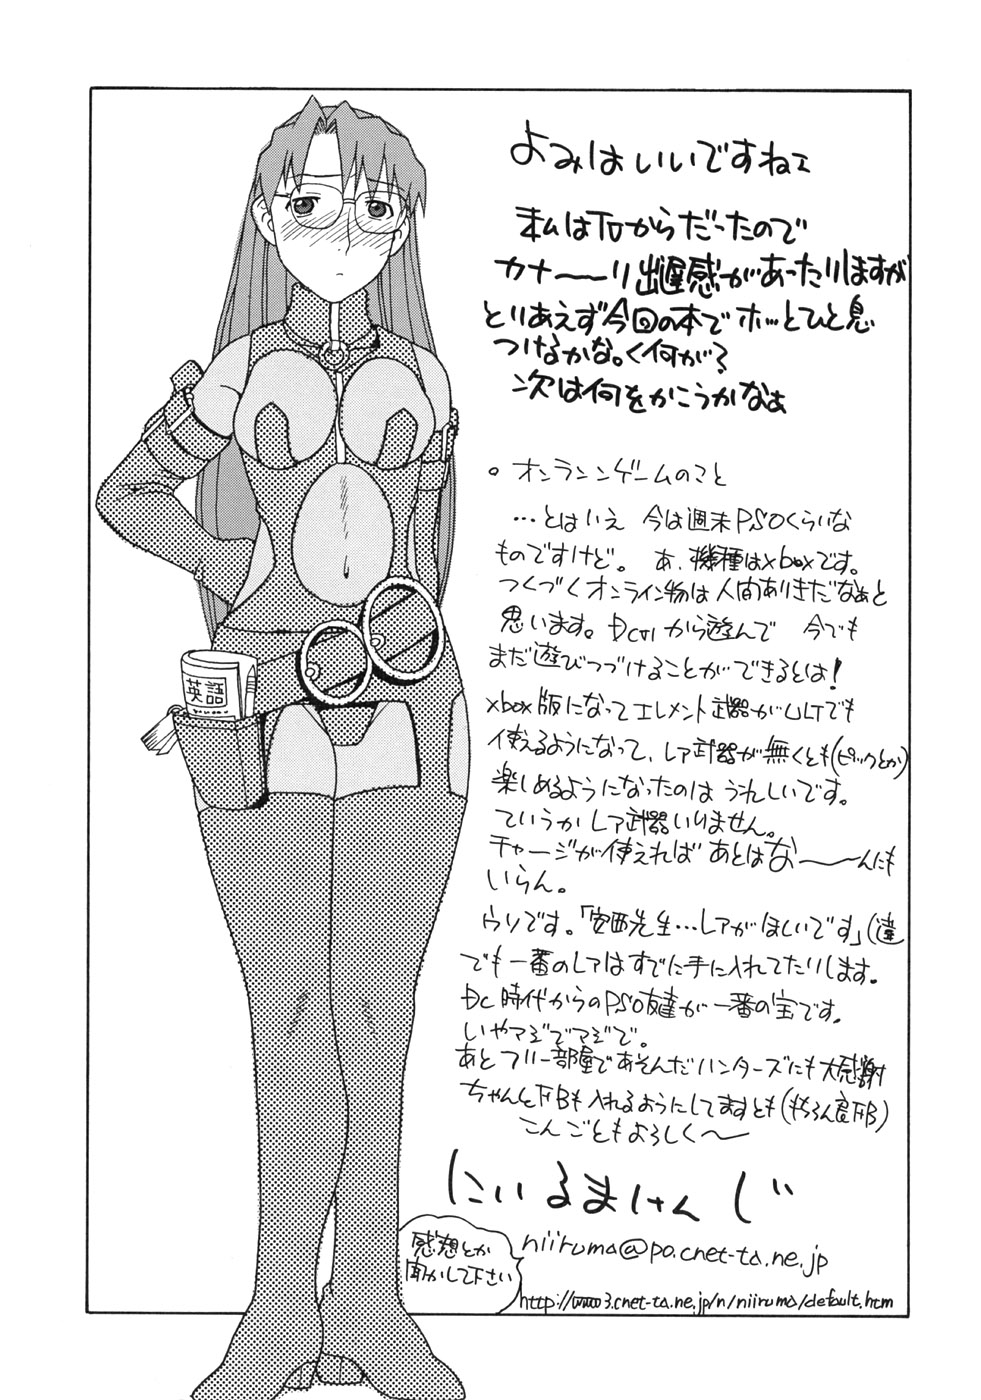 よみはいいですねェ
私はTVからだったので
カナ〜〜リ出遅感があったりしますが
とりあえず今回の本でホッとひと息
つけるかな。く何が?
次は何をかこうかなぁ
○ オンランンゲームのこと
…とはいえ 今は週末PSOくらいな
ものですけど。 あ、機種はxboxです。
つくづくオンライン物は人間ありきだなぁと
思います。DCの1から遊んで 今でも
まだ遊びつづけることができるとは!
xbox版になってエレメント武器がULTでも
使えるようになって、レア武器が無くとも(ピックとか)
楽しめるようになったのは うれしいです。
ていうかレア武器いりません。
チャージが使えれば あとはな〜〜んにも
いらん。
ウソです。「安西先生…レアがほしいです」(違
でも一番のレアはすでに手に入れてたりします。
DC時代からのPSO友達が一番の宝です。
いやマジでマジで。
あとフリー部屋であそんだハンターズにも大感謝
ちゃんとFBも入れるようにしてますとも(もちろん裏FB)
こんごともよろしく〜
にいるまけんじ
niiruma@po.cnet-ta.ne.jp
http://www3.cnet-ta.ne.jp/n/niiruma/default.htm
感想とか
聞かして下さい
英語